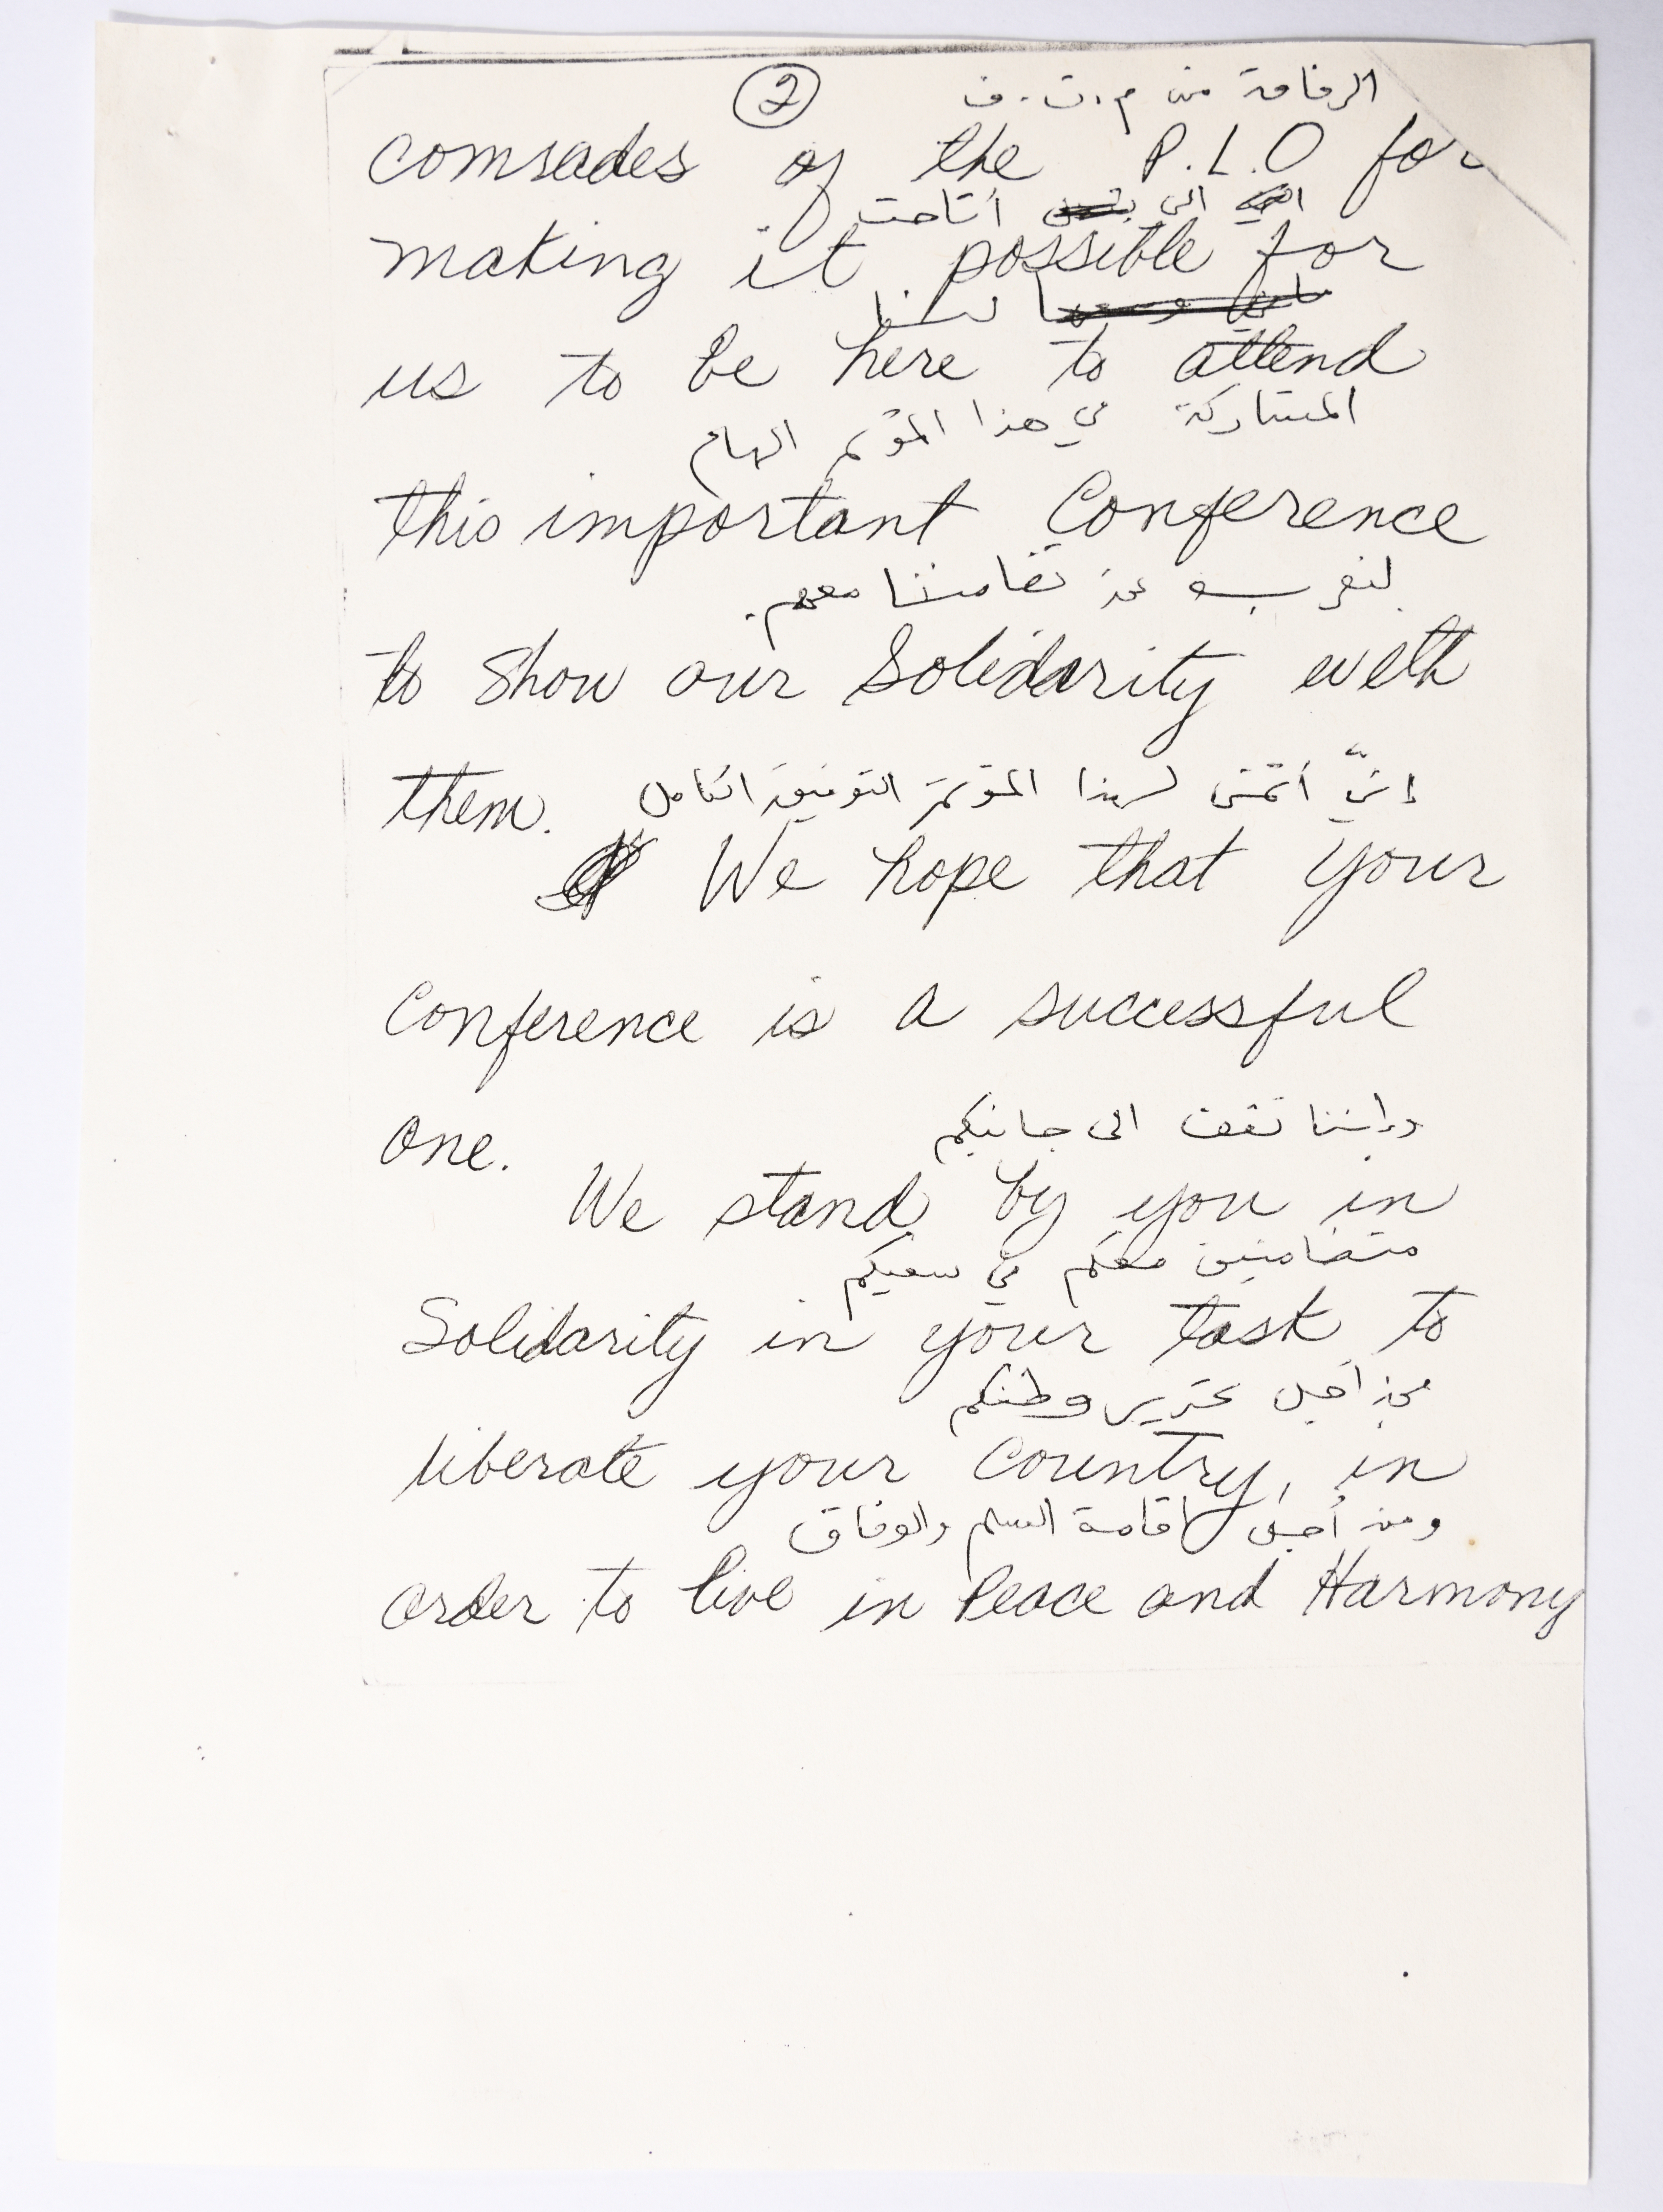 ②
الرفاقة من م.ت.ف
comrades of the P.L.O for
التي أتاحت
making it possible for
لنا
us to be here to attend
المشاركة في هذا المؤتمر الهام
this important Conference
لنعرب عن تضامننا معهم.
to Show our Solidarity with
them.
إنّي أتمنى لهذا المؤتمر التوفيق الكامل
We hope that your
Conference is a successful
one.
وإننا نقف الى جانبكم
We stand by you in
متضامنين معكم في سعيكم
Solidarity in your task to
من أجل تحرير وطنكم
liberate your Country, in
ومن أجل اقامة السلم والوفاق
order to live in Peace and Harmony